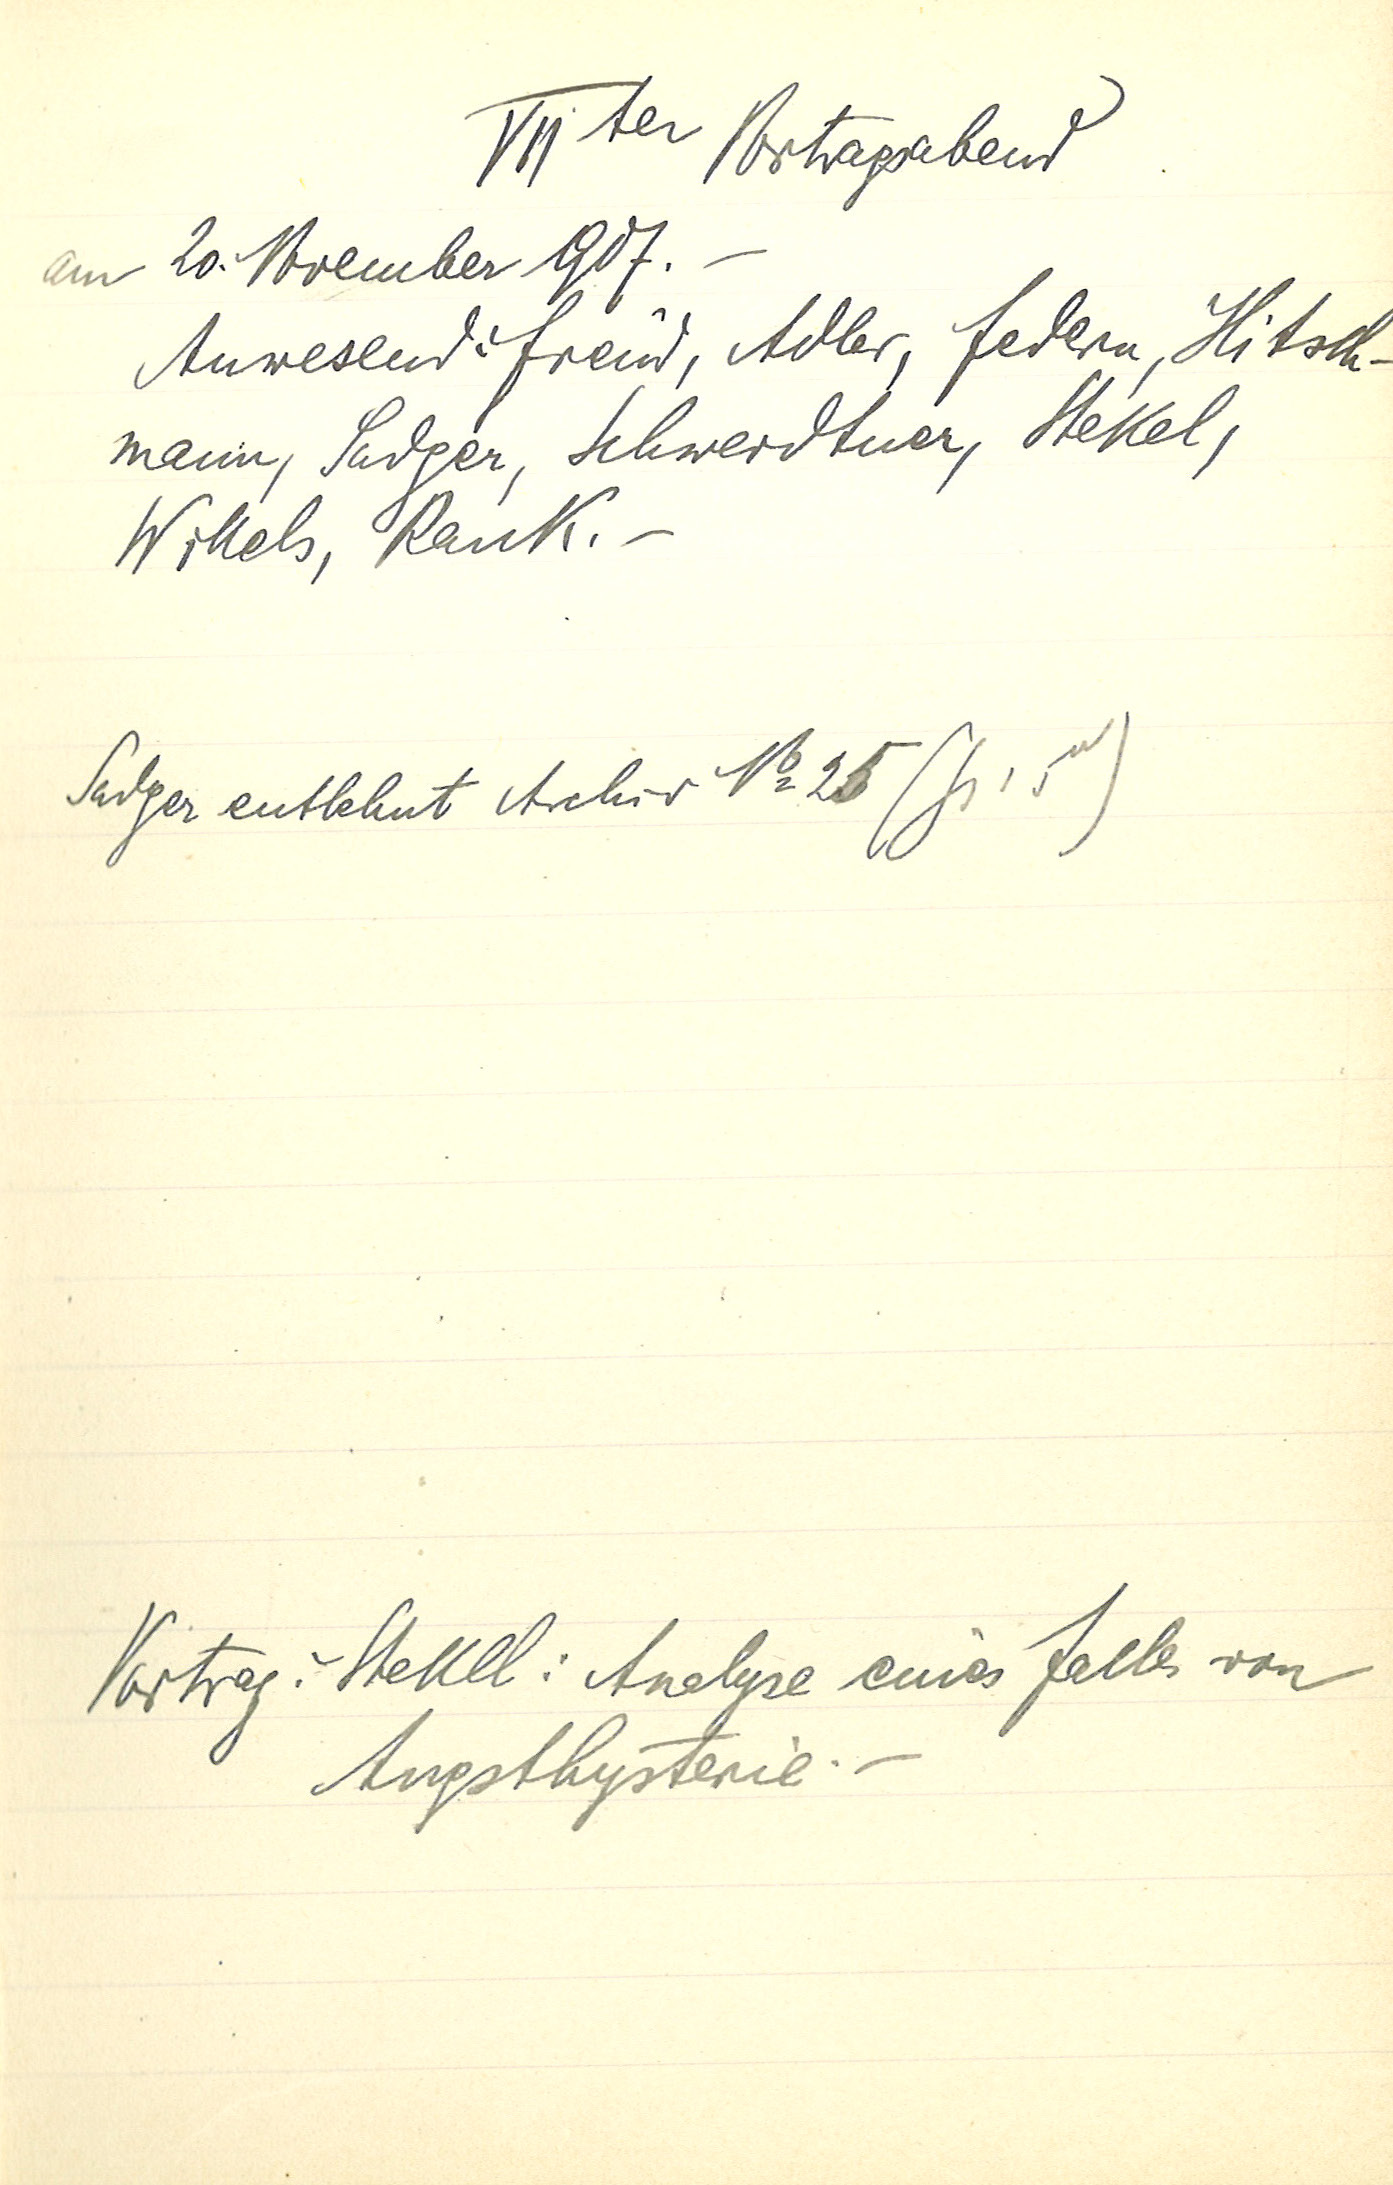 VIIter Vortragsabend
am 20. November 1907. –
Anwesend: Freud, Adler, Federn, Hitsch-
mann, Sadger, Schwerdtner, Stekel,
Wittels, Rank. –
Sadger entlehnt Archiv No 25
Vortrag: Stekel: Analyse eines Falles von
Angsthysterie. –